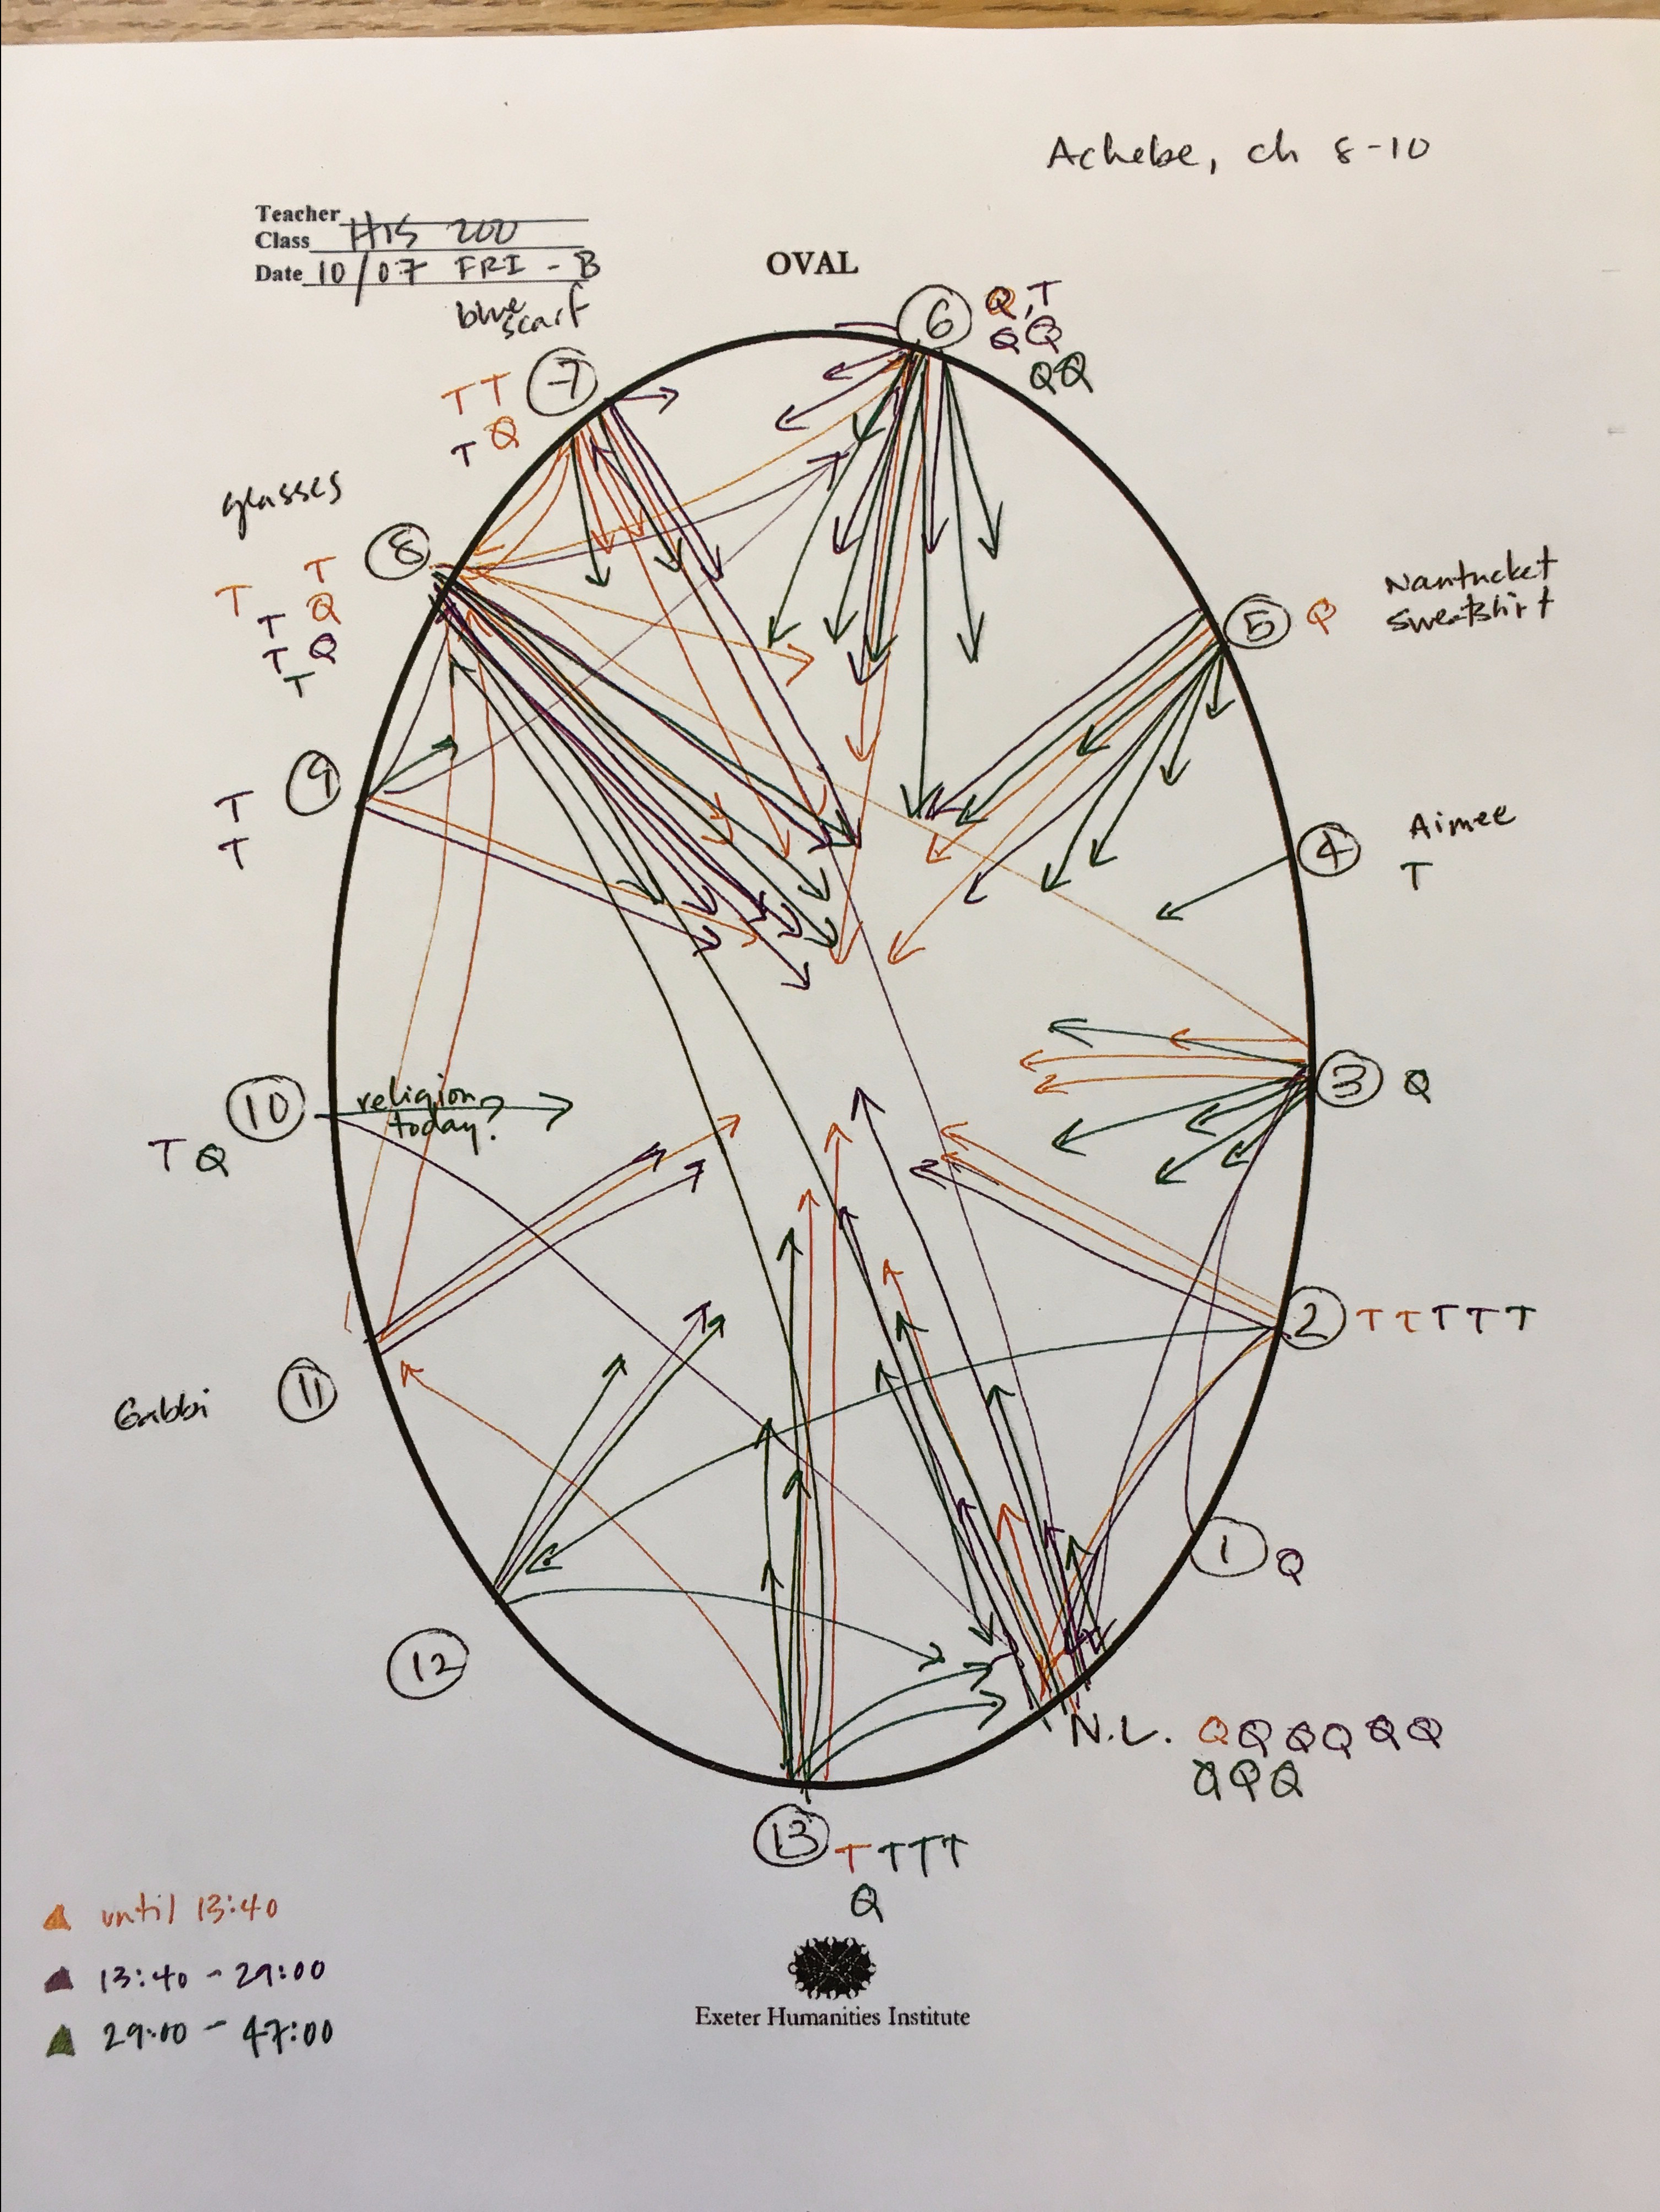 Achebe, ch 8-10
Teacher
Class HIS 200
Date 10/07 FRI - B
OVAL
blue
scarf
6 Q, T
Q Q
Q Q
7
T T
T Q
glasses
8
T
T Q
T
T Q
T
5 Q
Nantucket
sweatshirt
9
T
T
4
Aimee
T
3 Q
10
religion
today?
T Q
2 T T T T T
11
Gabbi
1 Q
12
N.L. Q Q Q Q Q Q
Q Q Q
13 T T T T
Q
until 13:40
13:40 - 29:00
29:00 - 47:00
Exeter Humanities Institute